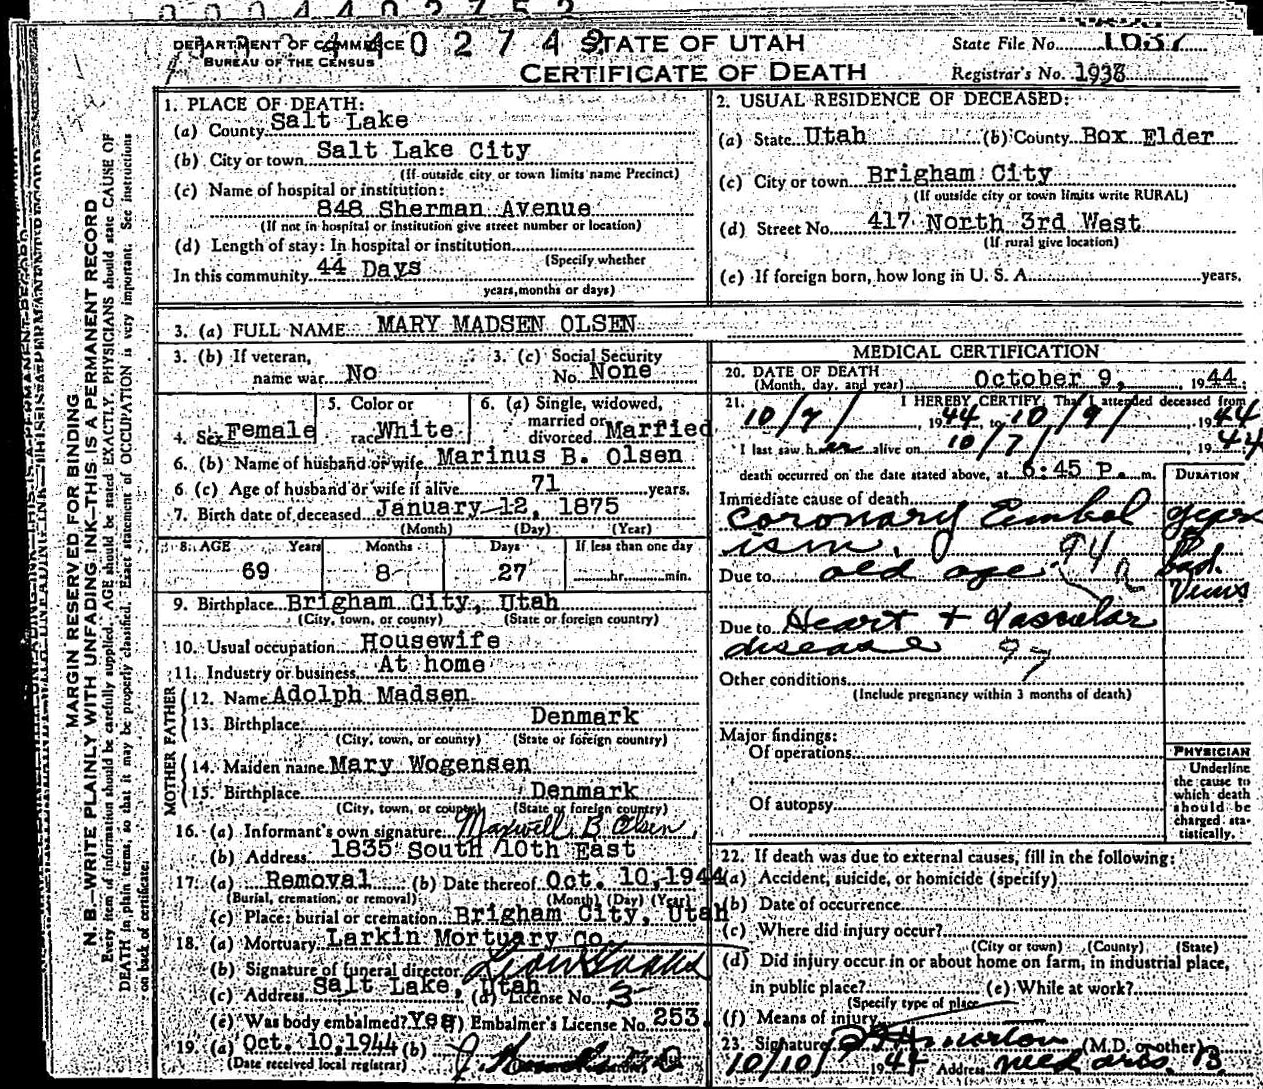 DEPARTMENT OF COMMERCE
BUREAU OF THE CENSUS
STATE OF UTAH
CERTIFICATE OF DEATH
State File No. 1637
Registrar's No. 1938
MARGIN RESERVED FOR BINDING
N. B.—WRITE PLAINLY WITH UNFADING INK—THIS IS A PERMANENT RECORD
Every item of information should be carefully supplied. AGE should be stated EXACTLY. PHYSICIANS should state CAUSE OF
DEATH in plain terms, so that it may be properly classified. Exact statement of OCCUPATION is very important. See instructions
on back of certificate.
1. PLACE OF DEATH:
(a) County Salt Lake
(b) City or town Salt Lake City
(If outside city or town limits name Precinct)
(c) Name of hospital or institution:
848 Sherman Avenue
(If not in hospital or institution give street number or location)
(d) Length of stay: In hospital or institution
(Specify whether
In this community 44 Days
years, months or days)
2. USUAL RESIDENCE OF DECEASED:
(a) State Utah (b) County Box Elder
(c) City or town Brigham City
(If outside city or town limits write RURAL)
(d) Street No. 417 North 3rd West
(If rural give location)
(e) If foreign born, how long in U. S. A. years.
3. (a) FULL NAME MARY MADSEN OLSEN
3. (b) If veteran, name war No
3. (c) Social Security No. None
4. Sex Female
5. Color or race White
6. (a) Single, widowed, married or divorced Married
6. (b) Name of husband or wife Marinus B. Olsen
6. (c) Age of husband or wife if alive 71 years.
7. Birth date of deceased January 12, 1875
(Month) (Day) (Year)
8. AGE Years Months Days If less than one day
69 8 27 hr. min.
9. Birthplace Brigham City, Utah
(City, town, or county) (State or foreign country)
10. Usual occupation Housewife
11. Industry or business At home
FATHER
12. Name Adolph Madsen
13. Birthplace Denmark
(City, town, or county) (State or foreign country)
MOTHER
14. Maiden name Mary Wogensen
15. Birthplace Denmark
(City, town, or county) (State or foreign country)
16. (a) Informant's own signature Maxwell B Olsen
(b) Address 1835 South 10th East
17. (a) Removal (b) Date thereof Oct. 10, 1944
(Burial, cremation, or removal) (Month) (Day) (Year)
(c) Place: burial or cremation Brigham City, Utah
18. (a) Mortuary Larkin Mortuary Co.
(b) Signature of funeral director
(c) Address Salt Lake, Utah (d) License No. 3
(e) Was body embalmed? Yes (f) Embalmer's License No. 253
19. (a) Oct. 10, 1944 (b)
(Date received local registrar)
MEDICAL CERTIFICATION
20. DATE OF DEATH
(Month, day, and year) October 9, 1944
21. I HEREBY CERTIFY, That I attended deceased from
10/7/, 1944 to 10/9/, 1944
I last saw her alive on 10/7/ 1944
death occurred on the date stated above, at 6:45 P. m.
DURATION
Immediate cause of death
Coronary Embol years
ism. 94a
Due to old age
Due to Heart + Vascular
disease 97
Other conditions
(Include pregnancy within 3 months of death)
Major findings:
Of operations
Of autopsy
PHYSICIAN
Underline
the cause to
which death
should be
charged sta-
tistically.
22. If death was due to external causes, fill in the following:
(a) Accident, suicide, or homicide (specify)
(b) Date of occurrence
(c) Where did injury occur?
(City or town) (County) (State)
(d) Did injury occur in or about home on farm, in industrial place,
in public place? (e) While at work?
(Specify type of place
(f) Means of injury
23. Signature (M.D. or other)
10/10/ 1944 Address Med Arts. B